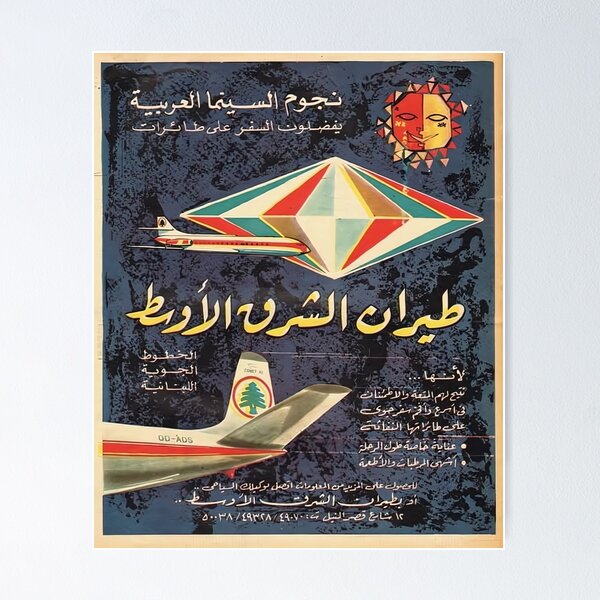 نجوم السينما العربية
يفضلون السفر على طائرات
طيران الشرق الأوسط
الخطوط
الجوية
اللبنانية
COMET 4C
OD-ADS
لأنها...
تتيح لهم المتعة والاطمئنان
في أسرع وأفخم سفر جوى
على طائراتها النفاثة
• عناية خاصة طول الرحلة
• أشهى المرطبات والأطعمة
للحصول على المزيد من المعلومات اتصل بوكيلك السياحى ..
أو بطيران الشرق الأوسط ..
١٢ شارع قصر النيل ت: ٤٩٠٧٠ / ٤٩٣٢٨ / ٥٠٠٣٨